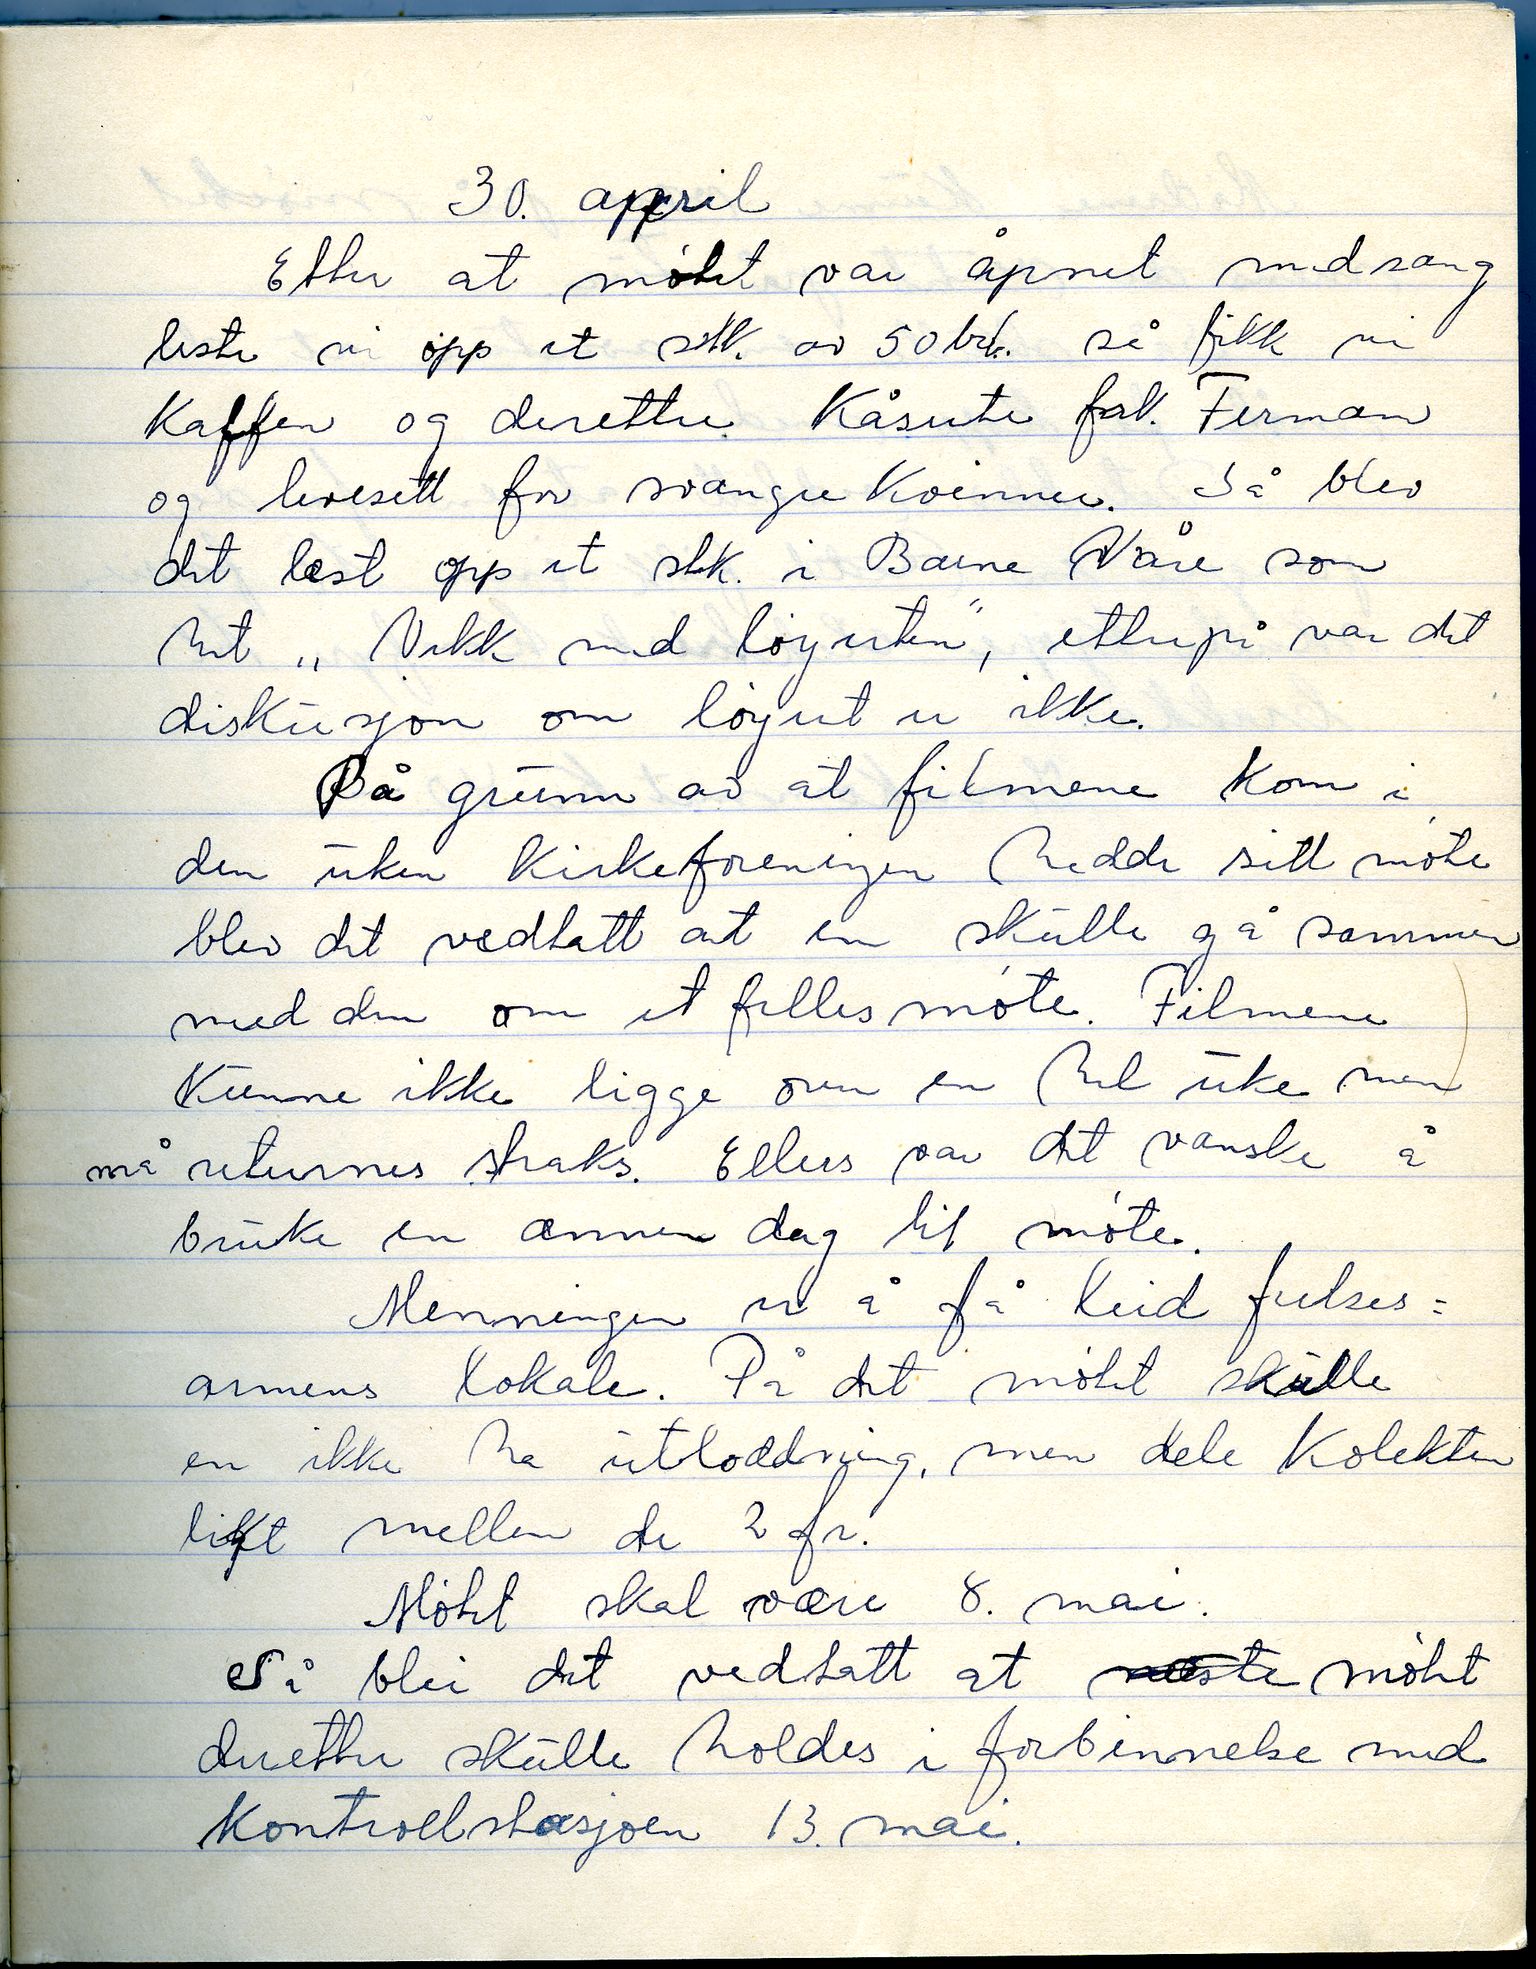 30. april
Etter at møtet var åpnet med sang
leste vi opp et stk. av 50 bri. så fikk vi
Kaffen og deretter Kåserte frk. Ferman
og levesett for svangre Kvinner. Så blev
det lest opp et stk. i Barne Våre som
het „ Vekk med løgnten", etterpå var det
diskusjon om løgnet er ikke.
På grunn av at filmene kom i
den uken Kirkeforeningen hadde sitt møte
blev det vedtatt at en skulle gå sammen
med dem om et felles møte. Filmene
Kunne ikke ligge over en hel uke men
må returnes straks. Ellers var det vanske å
bruke en annen dag til møte.
Menningen er å få leid frelses=
armens lokale. På det møtet skulle
en ikke ha utloddning, men dele Kolekten
likt mellem de 2 fr.
Møtet skal være 8. mai.
Så blei det vedtatt at neste møtet
deretter skulle holdes i forbinnelse med
Kontrollstasjoen 13. mai.